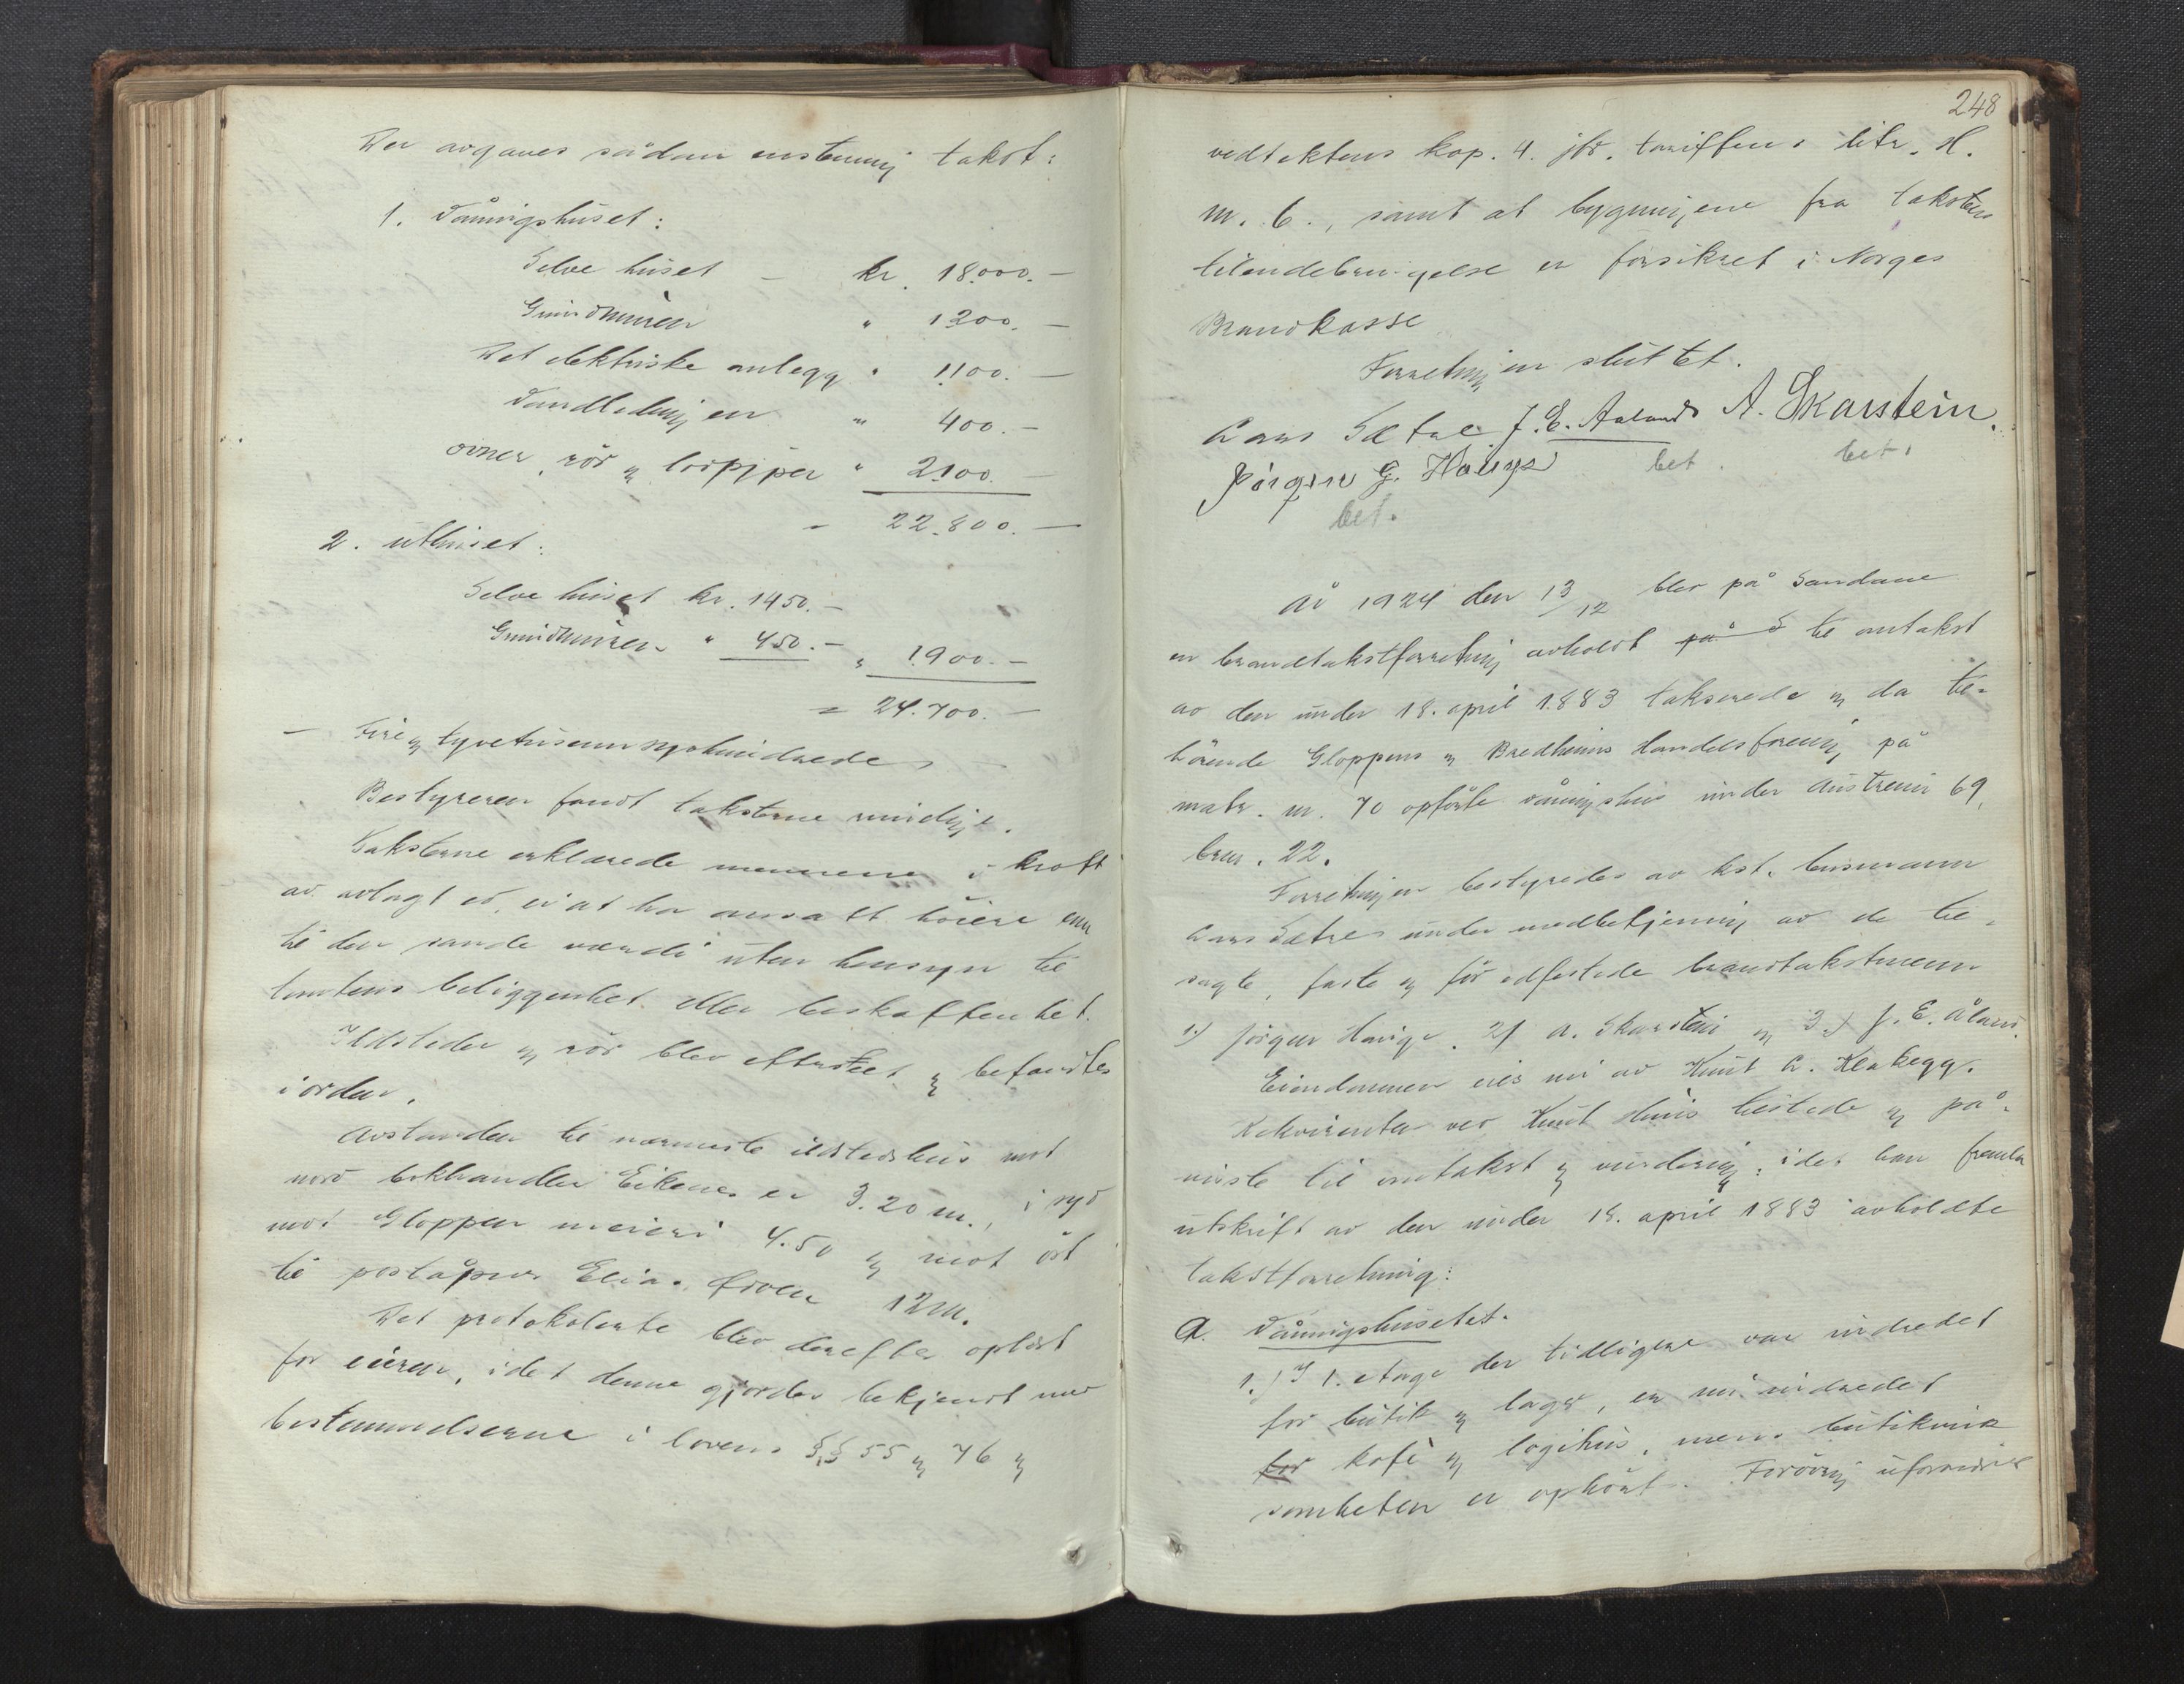 Der avgaves sådan enstemmig takst:
1. Våningshuset:
Selve huset – kr. 18.000.–
Grundmuren " 1200.–
Det elektriske anlegg " 1100.–
Vandledningen " 400.–
ovner, rör og  " 2100.–
= 22.800.–
2. uthuset:
Selve huset kr. 1450.–
Grundmuren " 450.– " 1900.–
= 24.700.–
– Fire og tyvetusensyvhundrede –
Bestyreren fandt taksterne rimelige.
Taksterne erklærede mennene i kraft
av avlagt ed, ei at ha ansatt höiere enn
til den sande værdi uten hensyn til
tomtens beliggenhet eller beskaffenhet.
Ildsteder og rör blev efterseet og befandtes
i orden.
Avstanden til nærmeste ildstedshus mot
nord bokhandler Eikenes er 3.20 m., i syd
mot Gloppen meieri 4.50 og mot öst
til poståpner Elias  12 m.
Det protokolerte blev derefter oplest
for eieren, idet denne gjordes bekjendt med
bestemmelserne i lovens §§ 55 og 76 og
248
vedtektens kap. 4. jfr. tariffens litr. H.
m. 6., samt at bygningene fra takstens
tilendebringelse er forsikret i Norges
Brandkasse
Forretningen sluttet.
Lars Sætre J. E. Aaland A. Skarstein.
Jörgen G. Hauge bet. bet.
bet.
År 1924 den 13/12 blev på Sandane
en brandtakstforretning avholdt på S til omtakst
av den under 18. april 1883 takserede og da til-
hörende Gloppens og Bredheims Handelsforening på
matr. nr. 70 opförte våningshus under Austrein 69,
brnr. 22.
Forretningen bestyredes av kst. lensmann
Lars Sætre under medbetjening av de til-
sagte, faste og för edfestede brandtakstmenn
1.) Jörgen Hauge, 2) A. Skarstein og 3.) J. E. Åland.
Eiendommen eies nu av Knut A. Kleksegg.
Rekvirenten ved Knut  tilstede og på-
viste til omtakst og vurdering, idet han fremla
utskrift av den under 18. april 1883 avholdte
takstforretning:
A. Våningshuset.
1.) I 1. etage der tidligere var indredet
for butik og lager, er nu indredet
for kafé og logihus, mens butikvirk
somheten er ophört. Forövrig uforandret